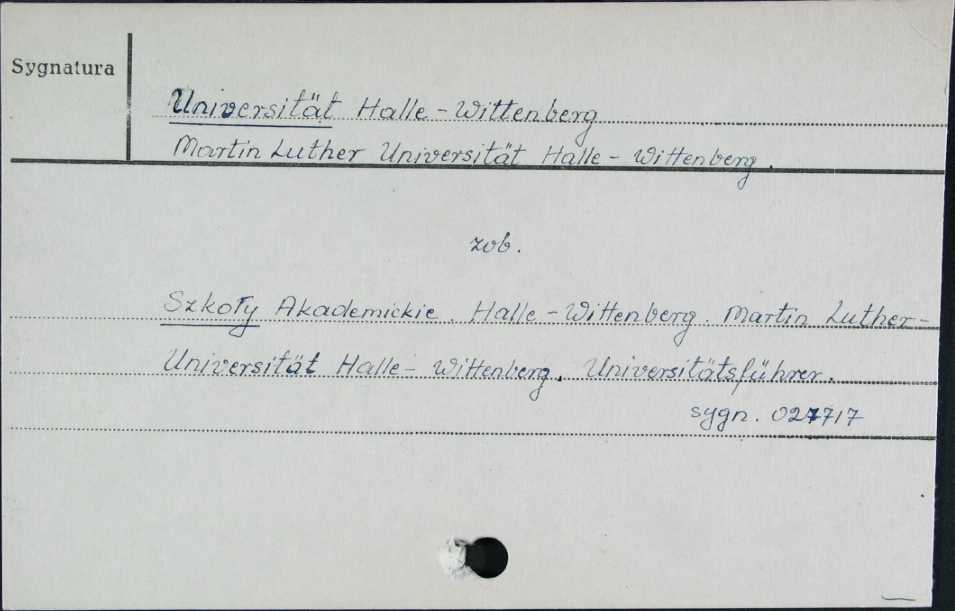 Sygnatura
Universität Halle-Wittenberg
Martin Luther Universität Halle-Wittenberg.
zob.
Szkoły Akademickie. Halle-Wittenberg. Martin Luther-
Universität Halle-Wittenberg. Universitätsführer.
sygn. 027717